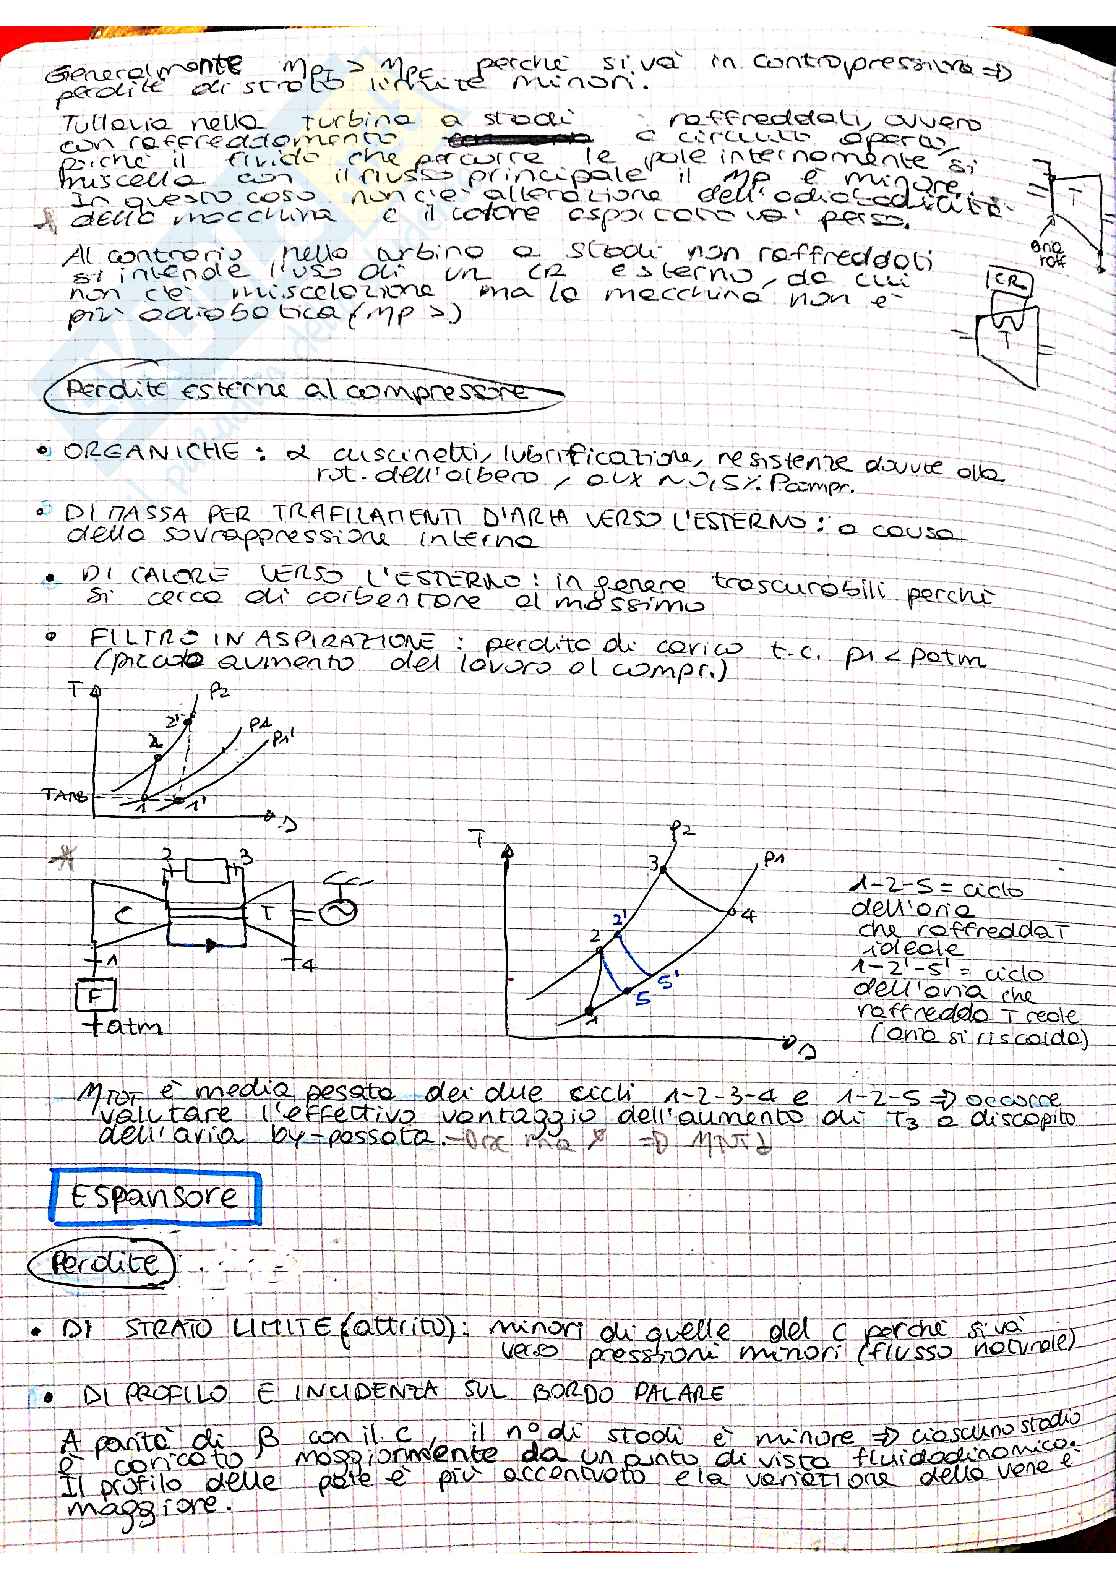 Generalmente ηpT > ηpC perché si va in contropressione ⇒
perdite di strato limite minori.
Tuttavia nella turbina a stadi raffreddati, ovvero
con raffreddamento a circuito aperto,
poiché il fluido che percorre le pale internamente si
miscela con il flusso principale il ηp è minore.
In questo caso non c'è alterazione dell'adiabaticità
della macchina e il calore asportato va perso.
Al contrario nella turbina a stadi non raffreddati
si intende l'uso di un CR esterno, da cui
non c'è miscelazione ma la macchina non è
più adiabatica (ηp >)
T
aria
raff
CR
T
Perdite esterne al compressore
• ORGANICHE: α cuscinetti, lubrificazione, resistenze dovute alla
rot. dell'albero, aux ~ 0,5% Pcompr.
• DI MASSA PER TRAFILAMENTI D'ARIA VERSO L'ESTERNO: a causa
della sovrappressione interna
• DI CALORE VERSO L'ESTERNO: in genere trascurabili perché
si cerca di coibentare al massimo
• FILTRO IN ASPIRAZIONE: perdita di carico t.c. p1 < patm
(piccolo aumento del lavoro al compr.)
T
p2
2'
p1
p1'
2
TAMB
1 1'
s
2 3
C T
1 4
F
atm
T
p2
p1
3
4
2'
2
5'
5
1
s
1-2-5 = ciclo
dell'aria
che raffredda T
ideale
1-2'-5' = ciclo
dell'aria che
raffredda T reale
(aria si riscalda)
ηTOT è media pesata dei due cicli 1-2-3-4 e 1-2-5 ⇒ occorre
valutare l'effettivo vantaggio dell'aumento di T3 a discapito
dell'aria by-passata.
Espansore
Perdite
• DI STRATO LIMITE (attrito): minori di quelle del C perché si va
verso pressioni minori (flusso naturale)
• DI PROFILO E INCIDENZA SUL BORDO PALARE
A parità di β con il C, il n° di stadi è minore ⇒ ciascuno stadio
è caricato maggiormente da un punto di vista fluidodinamico.
Il profilo delle pale è più accentuato e la variazione della vena è
maggiore.